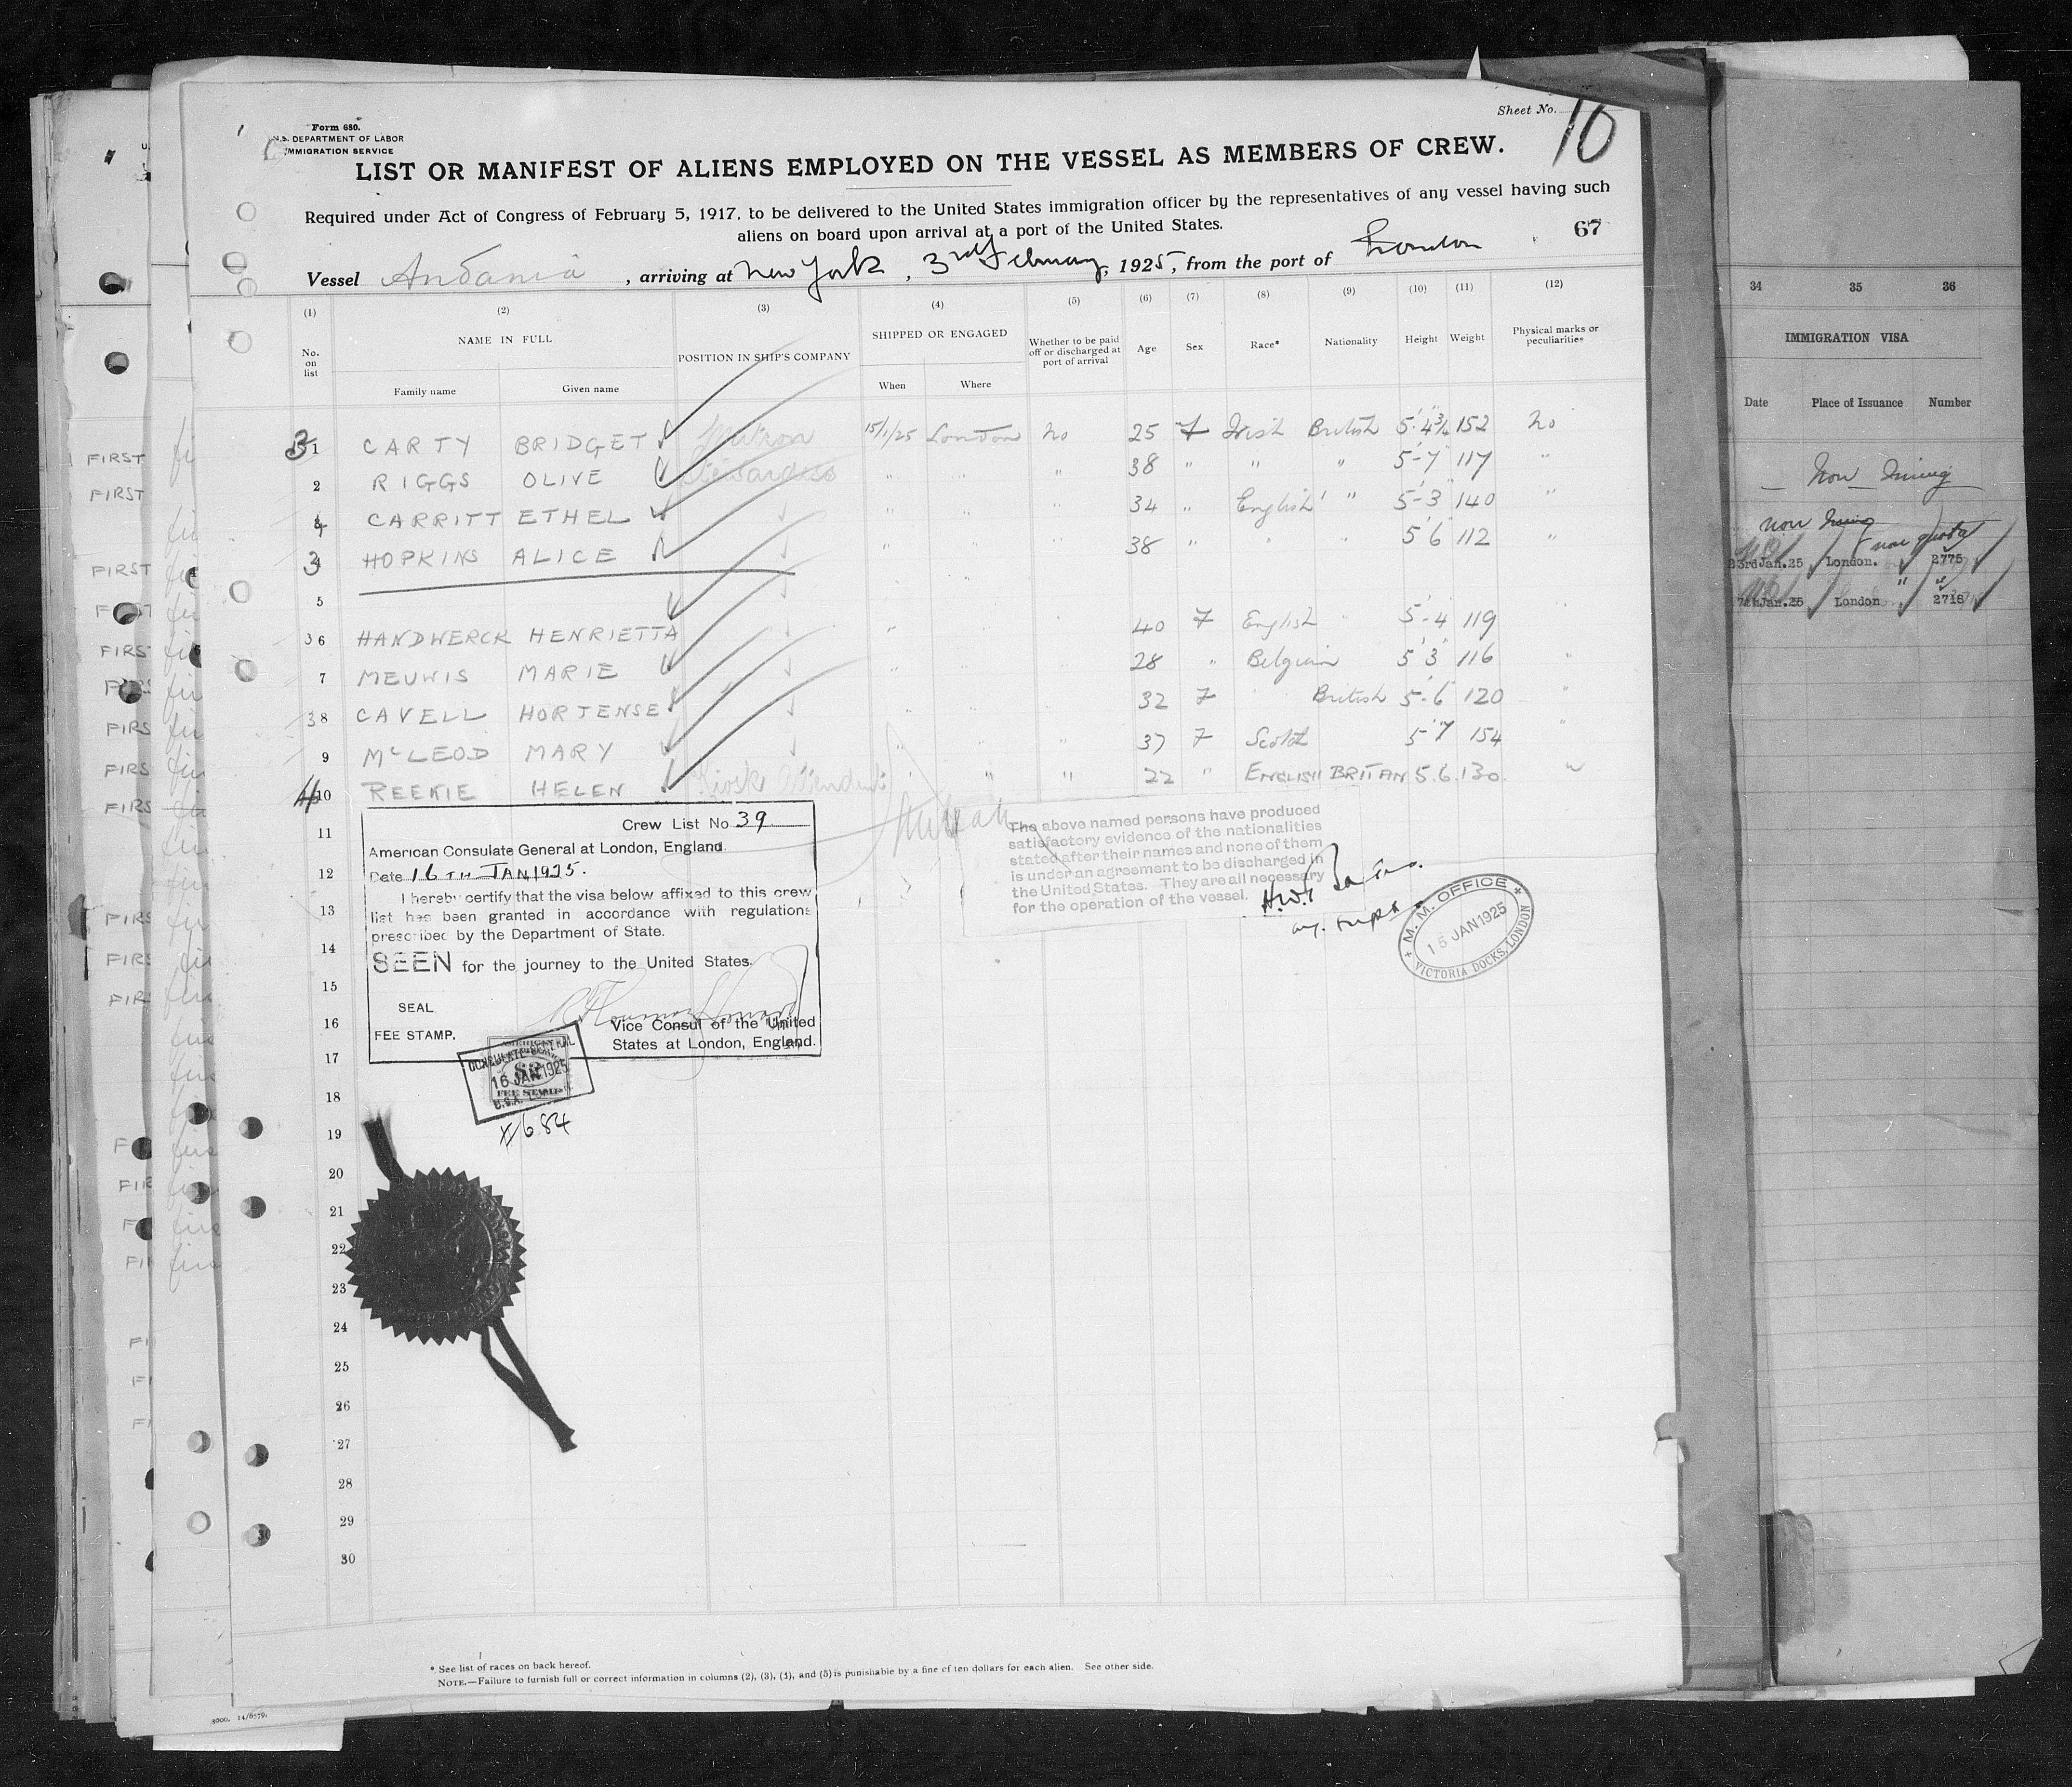 Sheet No. 10
Form 680.
U.S. DEPARTMENT OF LABOR
IMMIGRATION SERVICE
LIST OR MANIFEST OF ALIENS EMPLOYED ON THE VESSEL AS MEMBERS OF CREW.
Required under Act of Congress of February 5, 1917, to be delivered to the United States immigration officer by the representatives of any vessel having such
aliens on board upon arrival at a port of the United States.
67
Vessel Andania, arriving at New York, 3rd February, 1925, from the port of London
(1) (2) (3) (4) (5) (6) (7) (8) (9) (10) (11) (12)
No. on list NAME IN FULL POSITION IN SHIP'S COMPANY SHIPPED OR ENGAGED Whether to be paid off or discharged at port of arrival Age Sex Race* Nationality Height Weight Physical marks or peculiarities
Family name Given name When Where
1 CARTY BRIDGET Matron 15/1/25 London No 25 F Irish British 5'4¾" 152 No
2 RIGGS OLIVE Stewardess " " " 38 " " " 5-7 117 "
4 CARRITT ETHEL " " " 34 " English " 5-3 140 "
3 HOPKINS ALICE " " " 38 " " " 5'6 112 "
5
36 HANDWERCK HENRIETTA " 40 F English " 5-4 119 "
7 MEUWIS MARIE " 28 " Belgian 5'3" 116 "
38 CAVELL HORTENSE " 32 F British 5-6 120 "
9 McLEOD MARY " " " 37 F Scotch 5'7" 154 "
10 REEKIE HELEN Kiosk Attendant " " " 22 " ENGLISH BRITAN 5.6. 130. "
11
12
13
14
15
16
17
18
19
20
21
22
23
24
25
26
27
28
29
30
Crew List No 39
American Consulate General at London, England.
Date 16TH JAN 1925.
I hereby certify that the visa below affixed to this crew
list has been granted in accordance with regulations
prescribed by the Department of State.
SEEN for the journey to the United States.
SEAL
FEE STAMP.
Vice Consul of the United
States at London, England.
16 JAN 1925
FEE STAMP
#684
The above named persons have produced
satisfactory evidence of the nationalities
stated after their names and none of them
is under an agreement to be discharged in
the United States. They are all necessary
for the operation of the vessel.
M. M. OFFICE
15 JAN 1925
VICTORIA DOCKS, LONDON
* See list of races on back hereof.
NOTE.—Failure to furnish full or correct information in columns (2), (3), (4), and (5) is punishable by a fine of ten dollars for each alien. See other side.
34 35 36
IMMIGRATION VISA
Date Place of Issuance Number
non quota
23rd Jan.25 London. 2775
Jan.25 London " 2718
FIRST
FIRST
FIRST
FIRST